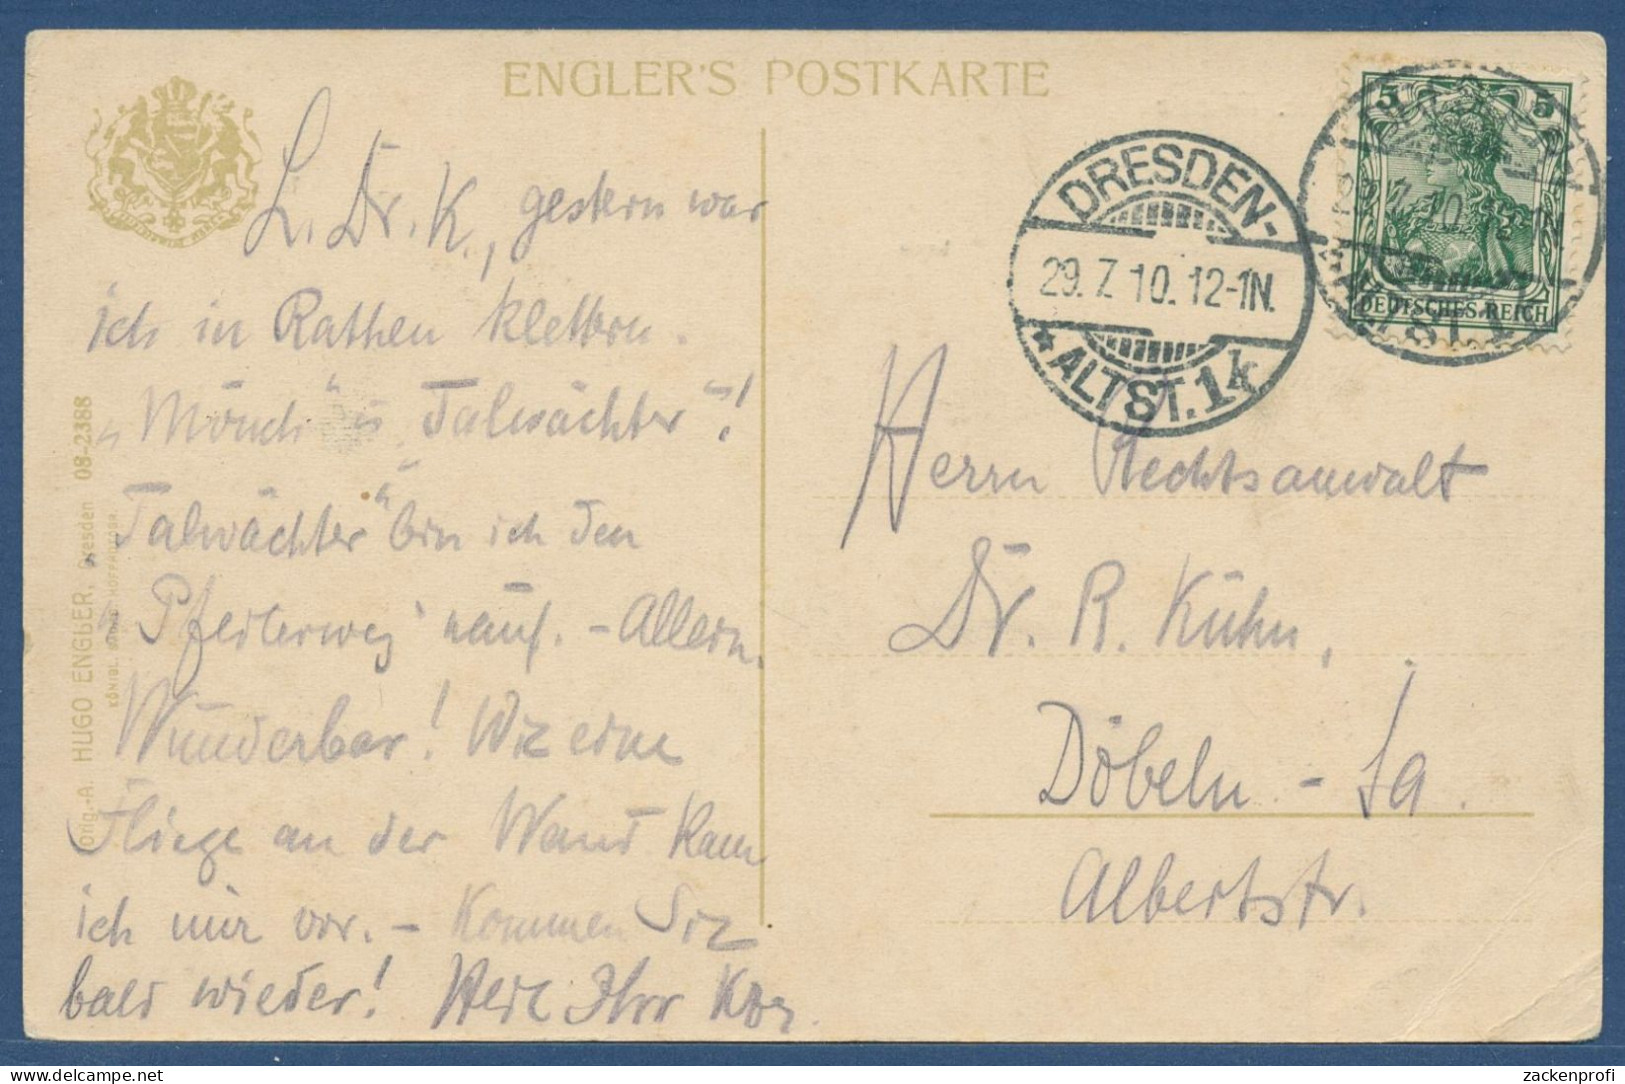 ENGLER'S POSTKARTE
L. Dr. K., gestern war
ich in Rathen klettern.
„Mönch" u „Talwächter"!
„Talwächter" bin ich den
„Pfeilerweg" rauf. – Allein.
Wunderbar! Wie eine
Fliege an der Wand kam
ich mir vor. – Kommen Sie
bald wieder! Heil Ihr
Orig.-A. HUGO ENGLER, Dresden 08-2388
KÖNIGL. HOFPHOTOGR.
DRESDEN-
29.7.10.12-1N.
* ALTST. 1k
5 5
DEUTSCHES REICH
Herrn Rechtsanwalt
Dr. R. Kühn,
Döbeln – Sa.
Albertstr.
zackenprofi